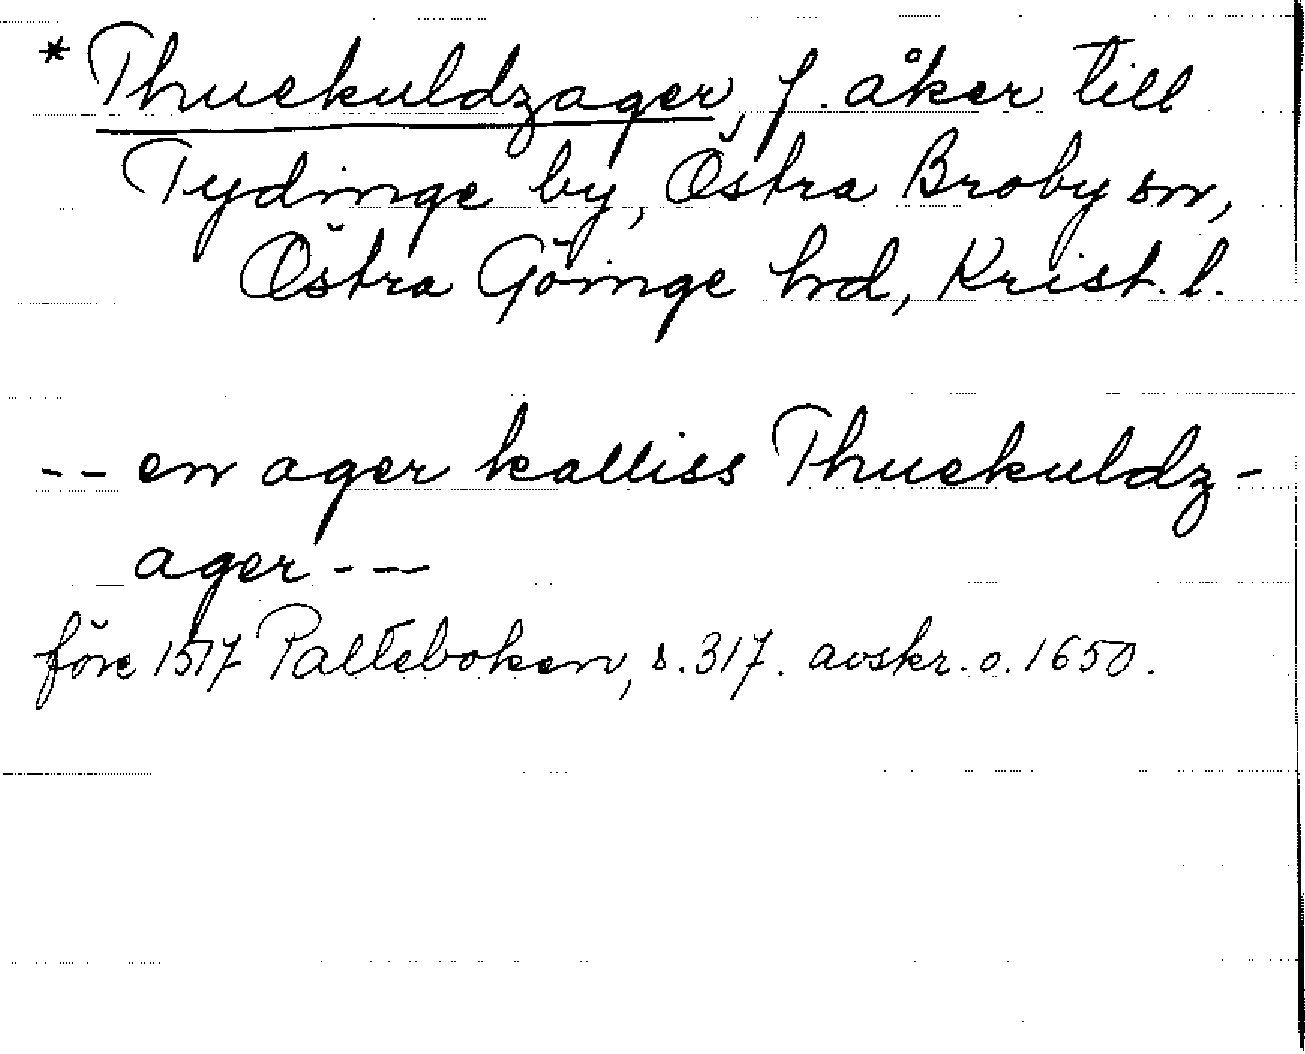 * Thuekuldzager, f. åker till
Tydinge by, Östra Broby sn,
Östra Göinge hrd, Krist. l.
-- en ager kalliss Thuekuldz-
ager --
före 1517 Palteboken, s. 317. avskr. o. 1650.